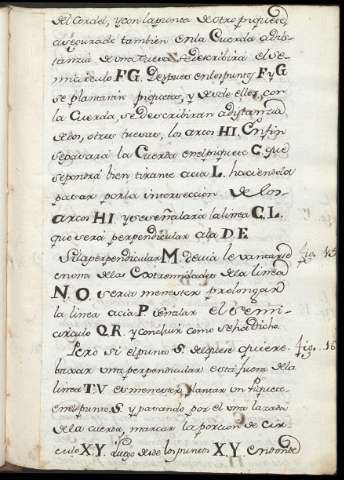 del Cordel, y con la punta de otro piquete,
asegurado tambien en la Cuerda a dis-
tancia de una tuesa describira el se-
micirculo FG. Despues en los puntos F y G
se plantarán piquetes, y desde ellos, con
la Cuerda, se describiran a distancia
de dos, o tres tuesas, los arcos HI. En fin
se pasará la Cuerda en el piquete C. que
se pondrá bien tirante acia L. haciendola
pasar por la interseccion de los
arcos HI y se señalará la linea C.L.
que será perpendicular a la D.E.
Si la perpendicular M. devia levantarse
en una de las extremidades de la linea
N.O seria menester prolongar
la linea acia P señalar el semi-
circulo QR y concluir como se ha dicho.
fig. 15
Pero si el punto S. del que se quiere
baxar una perpendicular está fuera de la
linea T.V es menester plantar un piquete
en el punto S. y pasando por el una lazada
de la cuerda, marcar la porcion de cir-
culo X.Y. luego desde los puntos X.Y. en donde
fig. 16